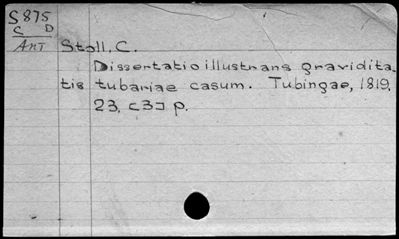 S875
C D
ANT Stoll, C.
Dissertatio illustrans gravidita-
tis tubariae casum. Tubingae, 1819.
23, [3] p.